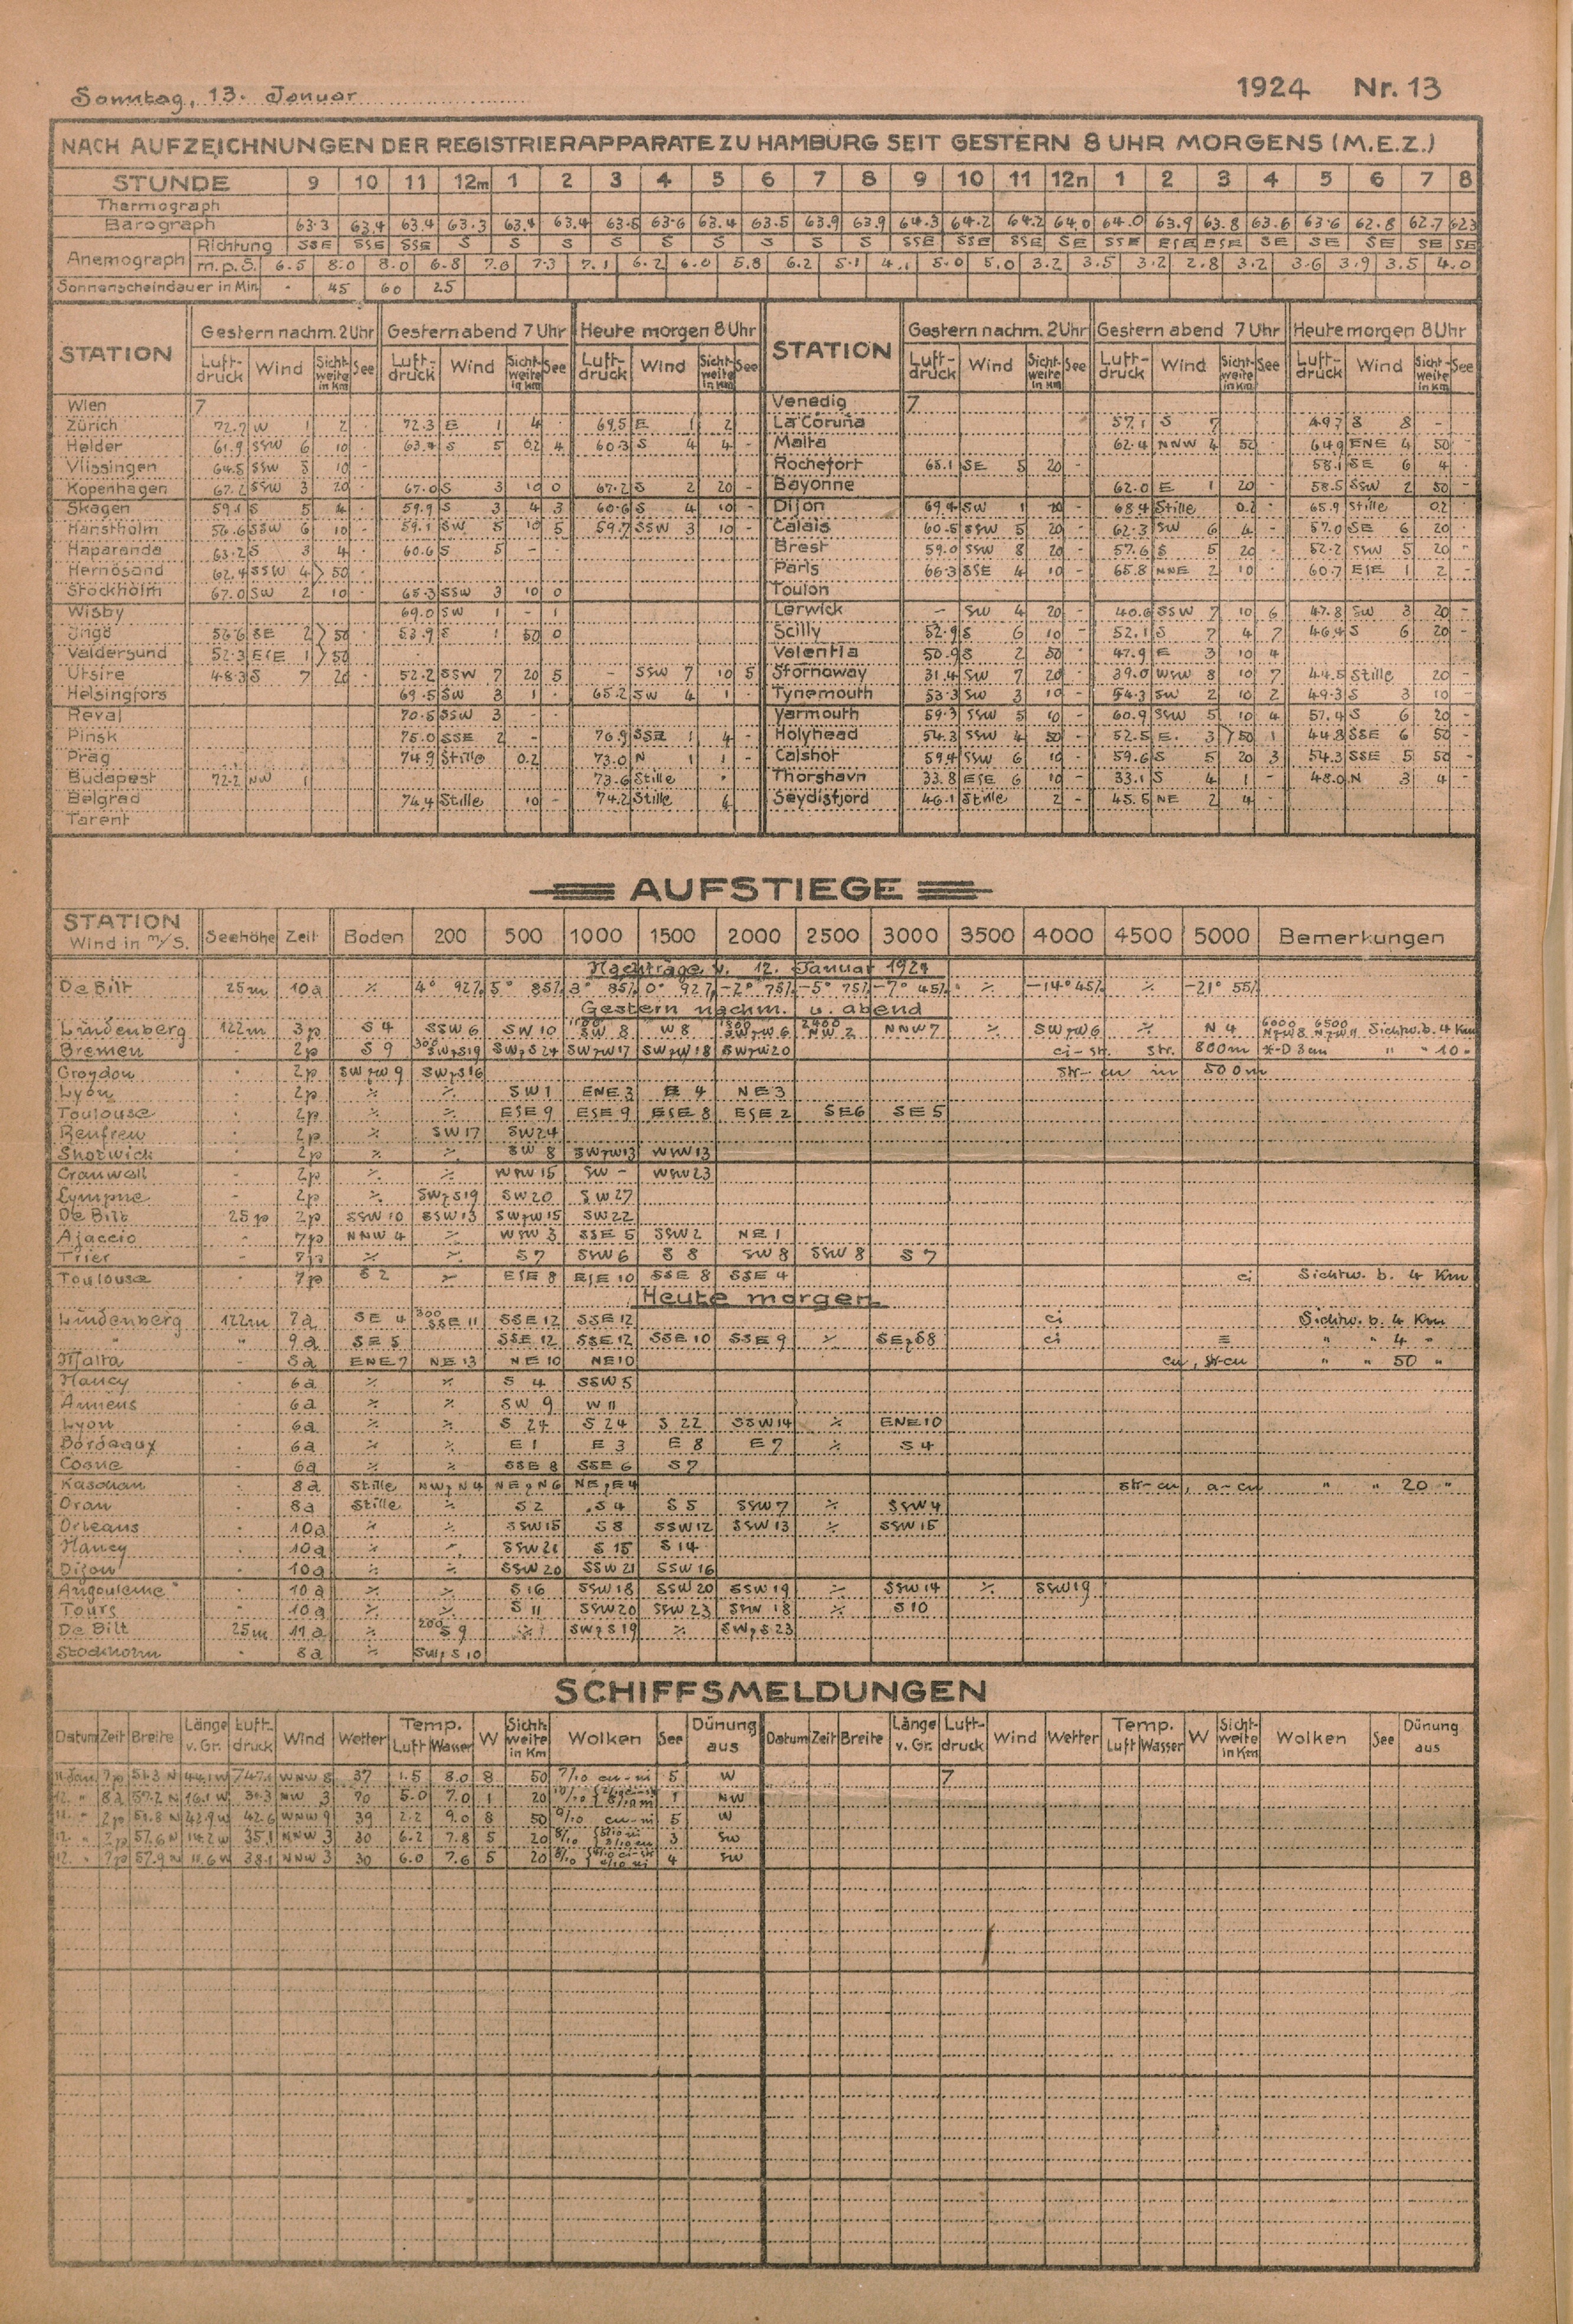 Sonntag, 13. Januar 1924 Nr. 13
NACH AUFZEICHNUNGEN DER REGISTRIERAPPARATE ZU HAMBURG SEIT GESTERN 8 UHR MORGENS (M.E.Z.)
STUNDE 9 10 11 12m 1 2 3 4 5 6 7 8 9 10 11 12n 1 2 3 4 5 6 7 8
Thermograph
Barograph 63.3 63.4 63.4 63.3 63.4 63.4 63.5 63.6 63.4 63.5 63.9 63.9 64.3 64.2 64.2 64.0 64.0 63.9 63.8 63.6 63.6 62.8 62.7 623
Anemograph Richtung SSE SSE SSE S S S S S S S S S SSE SSE SSE SE SSE ESE ESE SE SE SE SE SE
m.p.S. 6.5 8.0 8.0 6.8 7.0 7.3 7.1 6.2 6.0 5.8 6.2 5.1 4.1 5.0 5.0 3.2 3.5 3.2 2.8 3.2 3.6 3.9 3.5 4.0
Sonnenscheindauer in Min. - 45 60 25
STATION Gestern nachm. 2 Uhr Gestern abend 7 Uhr Heute morgen 8 Uhr STATION Gestern nachm. 2 Uhr Gestern abend 7 Uhr Heute morgen 8 Uhr
Luft-druck Wind Sicht-weite in Km See Luft-druck Wind Sicht-weite in Km See Luft-druck Wind Sicht-weite in Km See Luft-druck Wind Sicht-weite in Km See Luft-druck Wind Sicht-weite in Km See Luft-druck Wind Sicht-weite in Km See
Wien 7 Venedig 7
Zürich 72.7 W 1 2 72.3 E 1 4 69.5 E 1 2 La Coruña 57.1 S 7 49.7 S 8 -
Helder 61.9 SSW 6 10 63.4 S 5 02 4 60.3 S 4 4 - Malta 62.4 NNW 4 50 64.9 ENE 4 50
Vlissingen 64.5 SSW 5 10 - Rochefort 65.1 SE 5 20 - 58.1 SE 6 4
Kopenhagen 67.2 SSW 3 20 - 67.0 S 3 10 0 67.2 S 2 20 - Bayonne 62.0 E 1 20 - 58.5 SSW 2 50 -
Skagen 59.1 S 5 4 59.9 S 3 4 3 60.6 S 4 10 - Dijon 69.4 SW 1 68.4 Stille 0.2 65.9 Stille 02
Hanstholm 56.6 SSW 6 10 59.1 SW 5 10 5 59.7 SSW 3 10 - Calais 60.5 SSW 5 20 62.3 SW 6 4 57.0 SE 6 20
Haparanda 63.2 S 3 4 60.6 S 5 - Brest 59.0 SSW 8 20 57.6 S 5 20 52.2 SSW 5 20
Hernösand 62.4 SSW 4 >50 Paris 66.3 SSE 4 10 - 65.8 NNE 2 10 60.7 ESE 1 2 -
Stockholm 67.0 SW 2 10 65.3 SSW 3 10 0 Toulon
Wisby 69.0 SW 1 - 1 Lerwick - SW 4 20 - 40.6 SSW 7 10 6 47.8 SW 3 20 -
Ingö 56.6 SE 2 >50 53.9 S 1 50 0 Scilly 52.9 S 6 10 52.1 S 7 4 7 46.4 S 6 20 -
Valdersund 52.3 ESE 1 >50 Valentia 50.9 S 2 50 47.9 E 3 10 4
Utsire 48.3 S 7 20 52.2 SSW 7 20 5 - SSW 7 10 5 Stornoway 31.4 SW 7 20 39.0 WSW 8 10 7 44.5 Stille 20
Helsingfors 69.5 SW 3 1 65.2 SW 4 1 Tynemouth 53.3 SW 3 10 54.3 SW 2 10 2 49.3 S 3 10 -
Reval 70.5 SSW 3 - Yarmouth 59.3 SSW 5 10 - 60.9 SSW 5 10 4 57.4 S 6 20 -
Pinsk 75.0 SSE 2 - 76.9 SSE 1 4 - Holyhead 54.3 SSW 4 50 - 52.5 E. 3 >50 1 44.8 SSE 6 50 -
Prag 74.9 Stille 0.2 73.0 N 1 1 - Calshot 59.4 SSW 6 10 59.6 S 5 20 3 54.3 SSE 5 50 -
Budapest 72.2 NW 1 73.6 Stille Thorshavn 33.8 ESE 6 10 - 33.1 S 4 1 - 48.0 N 3 4 -
Belgrad 74.4 Stille 10 - 74.2 Stille 6 Seydisfjord 46.1 Stille 2 - 45.5 NE 2 4 -
Tarent
AUFSTIEGE
STATION Wind in m/s. Seehöhe Zeit Boden 200 500 1000 1500 2000 2500 3000 3500 4000 4500 5000 Bemerkungen
Nachträge v. 12. Januar 1924
De Bilt 25m 10a ⁒ 4° 92% 5° 85% 3° 85% 0° 92% -2° 75% -5° 75% -7° 45% ⁒ -14° 45% ⁒ -21° 55%
Gestern nachm. u. abend
Lindenberg 122m 3p S 4 SSW 6 SW 10 SW 8 W 8 SWzW 6 2400 NW 2 NNW 7 ⁒ SWzW 6 ⁒ N 4 6000 NzW 8 6500 NzW 11 Sichtw. b. 4 Km
Bremen - 2p S 9 300 SWzS 19 SWzS 24 SWzW 17 SWzW 18 SWzW 20 ci-str. str. 800m " " 10 "
Croydon 2p SWzW 9 SWzS 16 str-cu in 500m
Lyon 2p ⁒ ⁒ SW 1 ENE 3 E 4 NE 3
Toulouse 2p ⁒ ⁒ ESE 9 ESE 9 ESE 8 ESE 2 SE 6 SE 5
Renfrew 2p ⁒ SW 17 SW 24
Shotwick 2p ⁒ ⁒ SW 8 SWzW 13 WSW 13
Cranwell - 2p ⁒ ⁒ WSW 15 SW - WSW 23
Lympne - 2p ⁒ SWzS 19 SW 20 SW 27
De Bilt 25 p 2p SSW 10 SSW 13 SWzW 15 SW 22
Ajaccio - 7p NNW 4 ⁒ WSW 3 SSE 5 SSW 2 NE 1
Trier - 7p ⁒ ⁒ S 7 SSW 6 S 8 SW 8 SSW 8 S 7
Toulouse 7p S 2 ⁒ ESE 8 ESE 10 SSE 8 SSE 4 ci Sichtw. b. 4 Km
Heute morgen
Lindenberg 122m 7a SE 4 300 SSE 11 SSE 12 SSE 12 ci Sichtw. b. 4 Km
" " 9a SE 5 SSE 12 SSE 12 SSE 10 SSE 9 ⁒ SEzS 8 ci ≡ " " 4 "
Malta - 8a ENE 7 NE 13 NE 10 NE 10 cu, str-cu " " 50 "
Nancy 6a ⁒ ⁒ S 4 SSW 5
Amiens 6a ⁒ ⁒ SW 9 W 11
Lyon 6a ⁒ ⁒ S 24 S 24 S 22 SSW 14 ⁒ ENE 10
Bordeaux 6a ⁒ ⁒ E 1 E 3 E 8 E 7 ⁒ S 4
Cosne 6a ⁒ ⁒ SSE 8 SSE 6 S 7
Kasbnan 8a Stille NWzN 4 NEzN 6 NEzE 4 str-cu, a-cu " " 20 "
Oran 8a Stille ⁒ S 2 S 4 S 5 SSW 7 ⁒ SSW 4
Orleans 10a ⁒ ⁒ SSW 15 S 8 SSW 12 SSW 13 ⁒ SSW 15
Nancy 10a ⁒ ⁒ SSW 21 S 15 S 14
Dijon 10a ⁒ ⁒ SSW 20 SSW 21 SSW 16
Angouleme 10a ⁒ ⁒ S 16 SSW 18 SSW 20 SSW 19 ⁒ SSW 14 ⁒ SSW 19
Tours 10a ⁒ ⁒ S 11 SSW 20 SSW 23 SSW 18 ⁒ S 10
De Bilt 25m 11a ⁒ 200 S 9 ⁒ SWzS 19 ⁒ SWzS 23
Stockholm 8a ⁒ SWzS 10
SCHIFFSMELDUNGEN
Datum Zeit Breite Länge v. Gr. Luft-druck Wind Wetter Temp. Luft Wasser W Sicht-weite in Km Wolken See Dünung aus Datum Zeit Breite Länge v. Gr. Luft-druck Wind Wetter Temp. Luft Wasser W Sicht-weite in Km Wolken See Dünung aus
11. Jan 7p 51.3 N 44.1 W 747.1 WNW 8 37 1.5 8.0 8 50 7/10 cu-ni 5 W 7
12. " 8a 57.2 N 16.1 W 31.3 NW 3 70 5.0 7.0 1 20 10/10 1 NW
12. " 2p 51.8 N 42.9 W 42.6 WNW 9 39 2.2 9.0 8 50 9/10 cu-ni 5 W
12. " 2p 57.6 N 14.2 W 35.1 NNW 3 30 6.2 7.8 5 20 8/10 3 SW
12. " 7p 57.9 N 11.6 W 38.1 NNW 3 30 6.0 7.6 5 20 8/10 4 SW